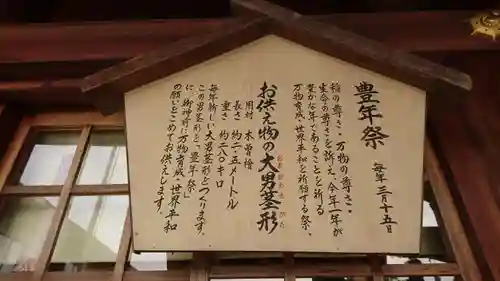 豊年祭 毎年 三月十五日
稲の尊さ・万物の尊さ・
生命の尊さを訴え、今年一年が
豊かな年であることを祈る
万物育成・世界平和を祈願する祭。
お供え物の大男茎形
おおおわせがた
用材 木曽檜
長さ 約二.五メートル
重さ 約二八〇キロ
毎年新しい大男茎形をつくります。
この男茎形を「豊年祭」
に御神前に万物育成・世界平和
の願いをこめてお供えします。